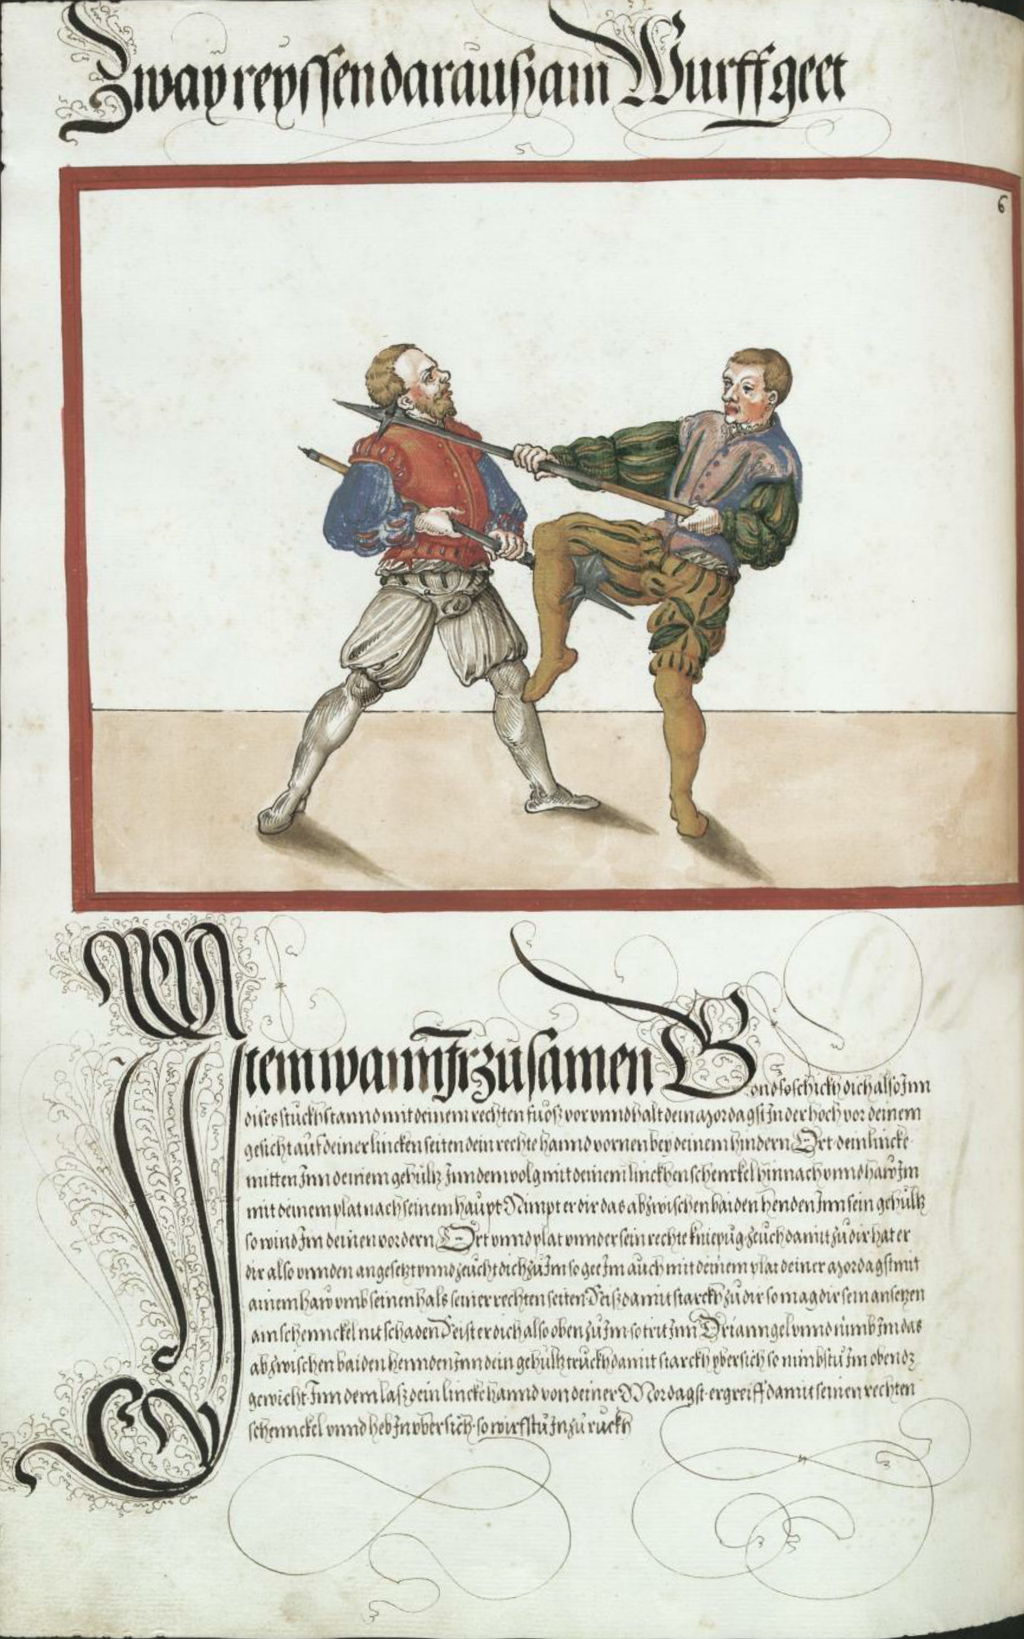 Zway reyssen daraus ain Wurff geet
6
Item wann Ir zusamen G
ond so schickh dich also Inn
dises stuckh stannd mit deinem rechten fuosz vor vnnd halt dein mordagst In der hoch vor deinem
gesicht auf deiner lincken seiten dein rechte hannd vornen bey deinem hindern Ort dein lincke
mitten Inn deinem gehültz Inn dem volg mit deinem linckhen schennckel hinnach vnnd haw Im
mit deinem plat nach seinem haupt Nimpt er dir das ab zwischen baiden henden Inn sein gehültz
so wind Im deinen vordern Ort vnnd plat vnnder sein rechte kniepug zeuch damit zu dir hat er
dir also vnnden angesetzt vnnd zeucht dich zu Im so gee Im auch mit deinem plat deiner mordagst mit
ainem haw vmb seinen hals seiner rechten seiten Reisz damit starckh zu dir so mag dir sein ansetzen
am schennckel nit schaden Reist er dich also oben zu Im so trit Inn Trianngel vnnd nimb Im das
ab zwischen baiden hennden Inn dein gehültz truckh damit starckh vbersich so nimbstu Im oben dz
gewicht Inn dem lasz dein lincke hannd von deiner Mordagst ergreiff damit seinen rechten
schennckel vnnd heb In vbersich so wirfstu In zu ruckh